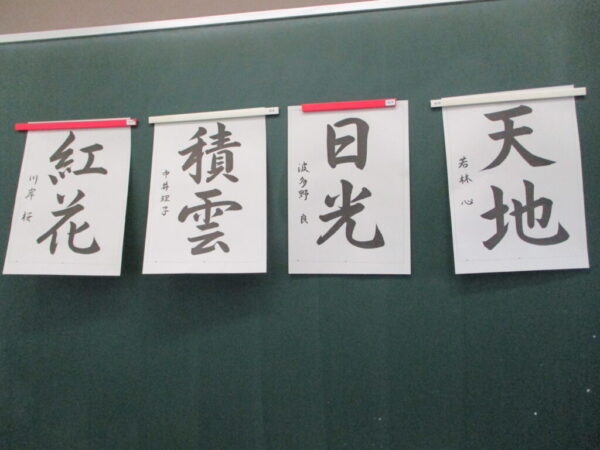 天地
若林 心
日光
波多野 良
積雲
中井理子
紅花
川岸 桜